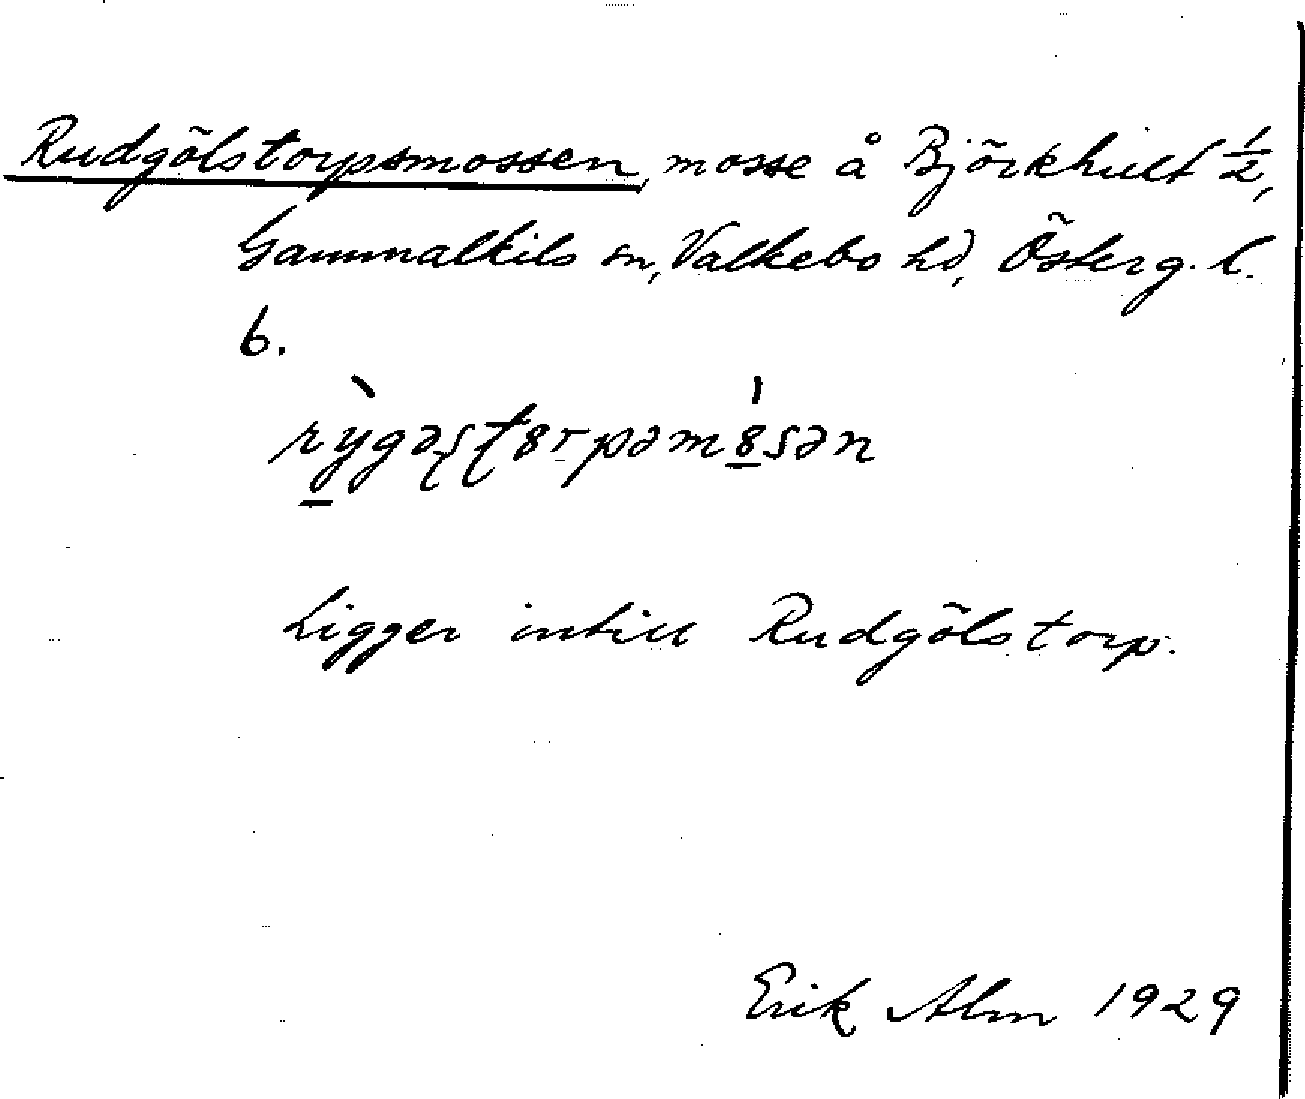 Rudgölstorpsmossen, mosse å Björkhult 1/2,
Gammalkils sn, Valkebo hd, Österg. l.
6.
Ligger intill Rudgölstorp.
Erik Alm 1929